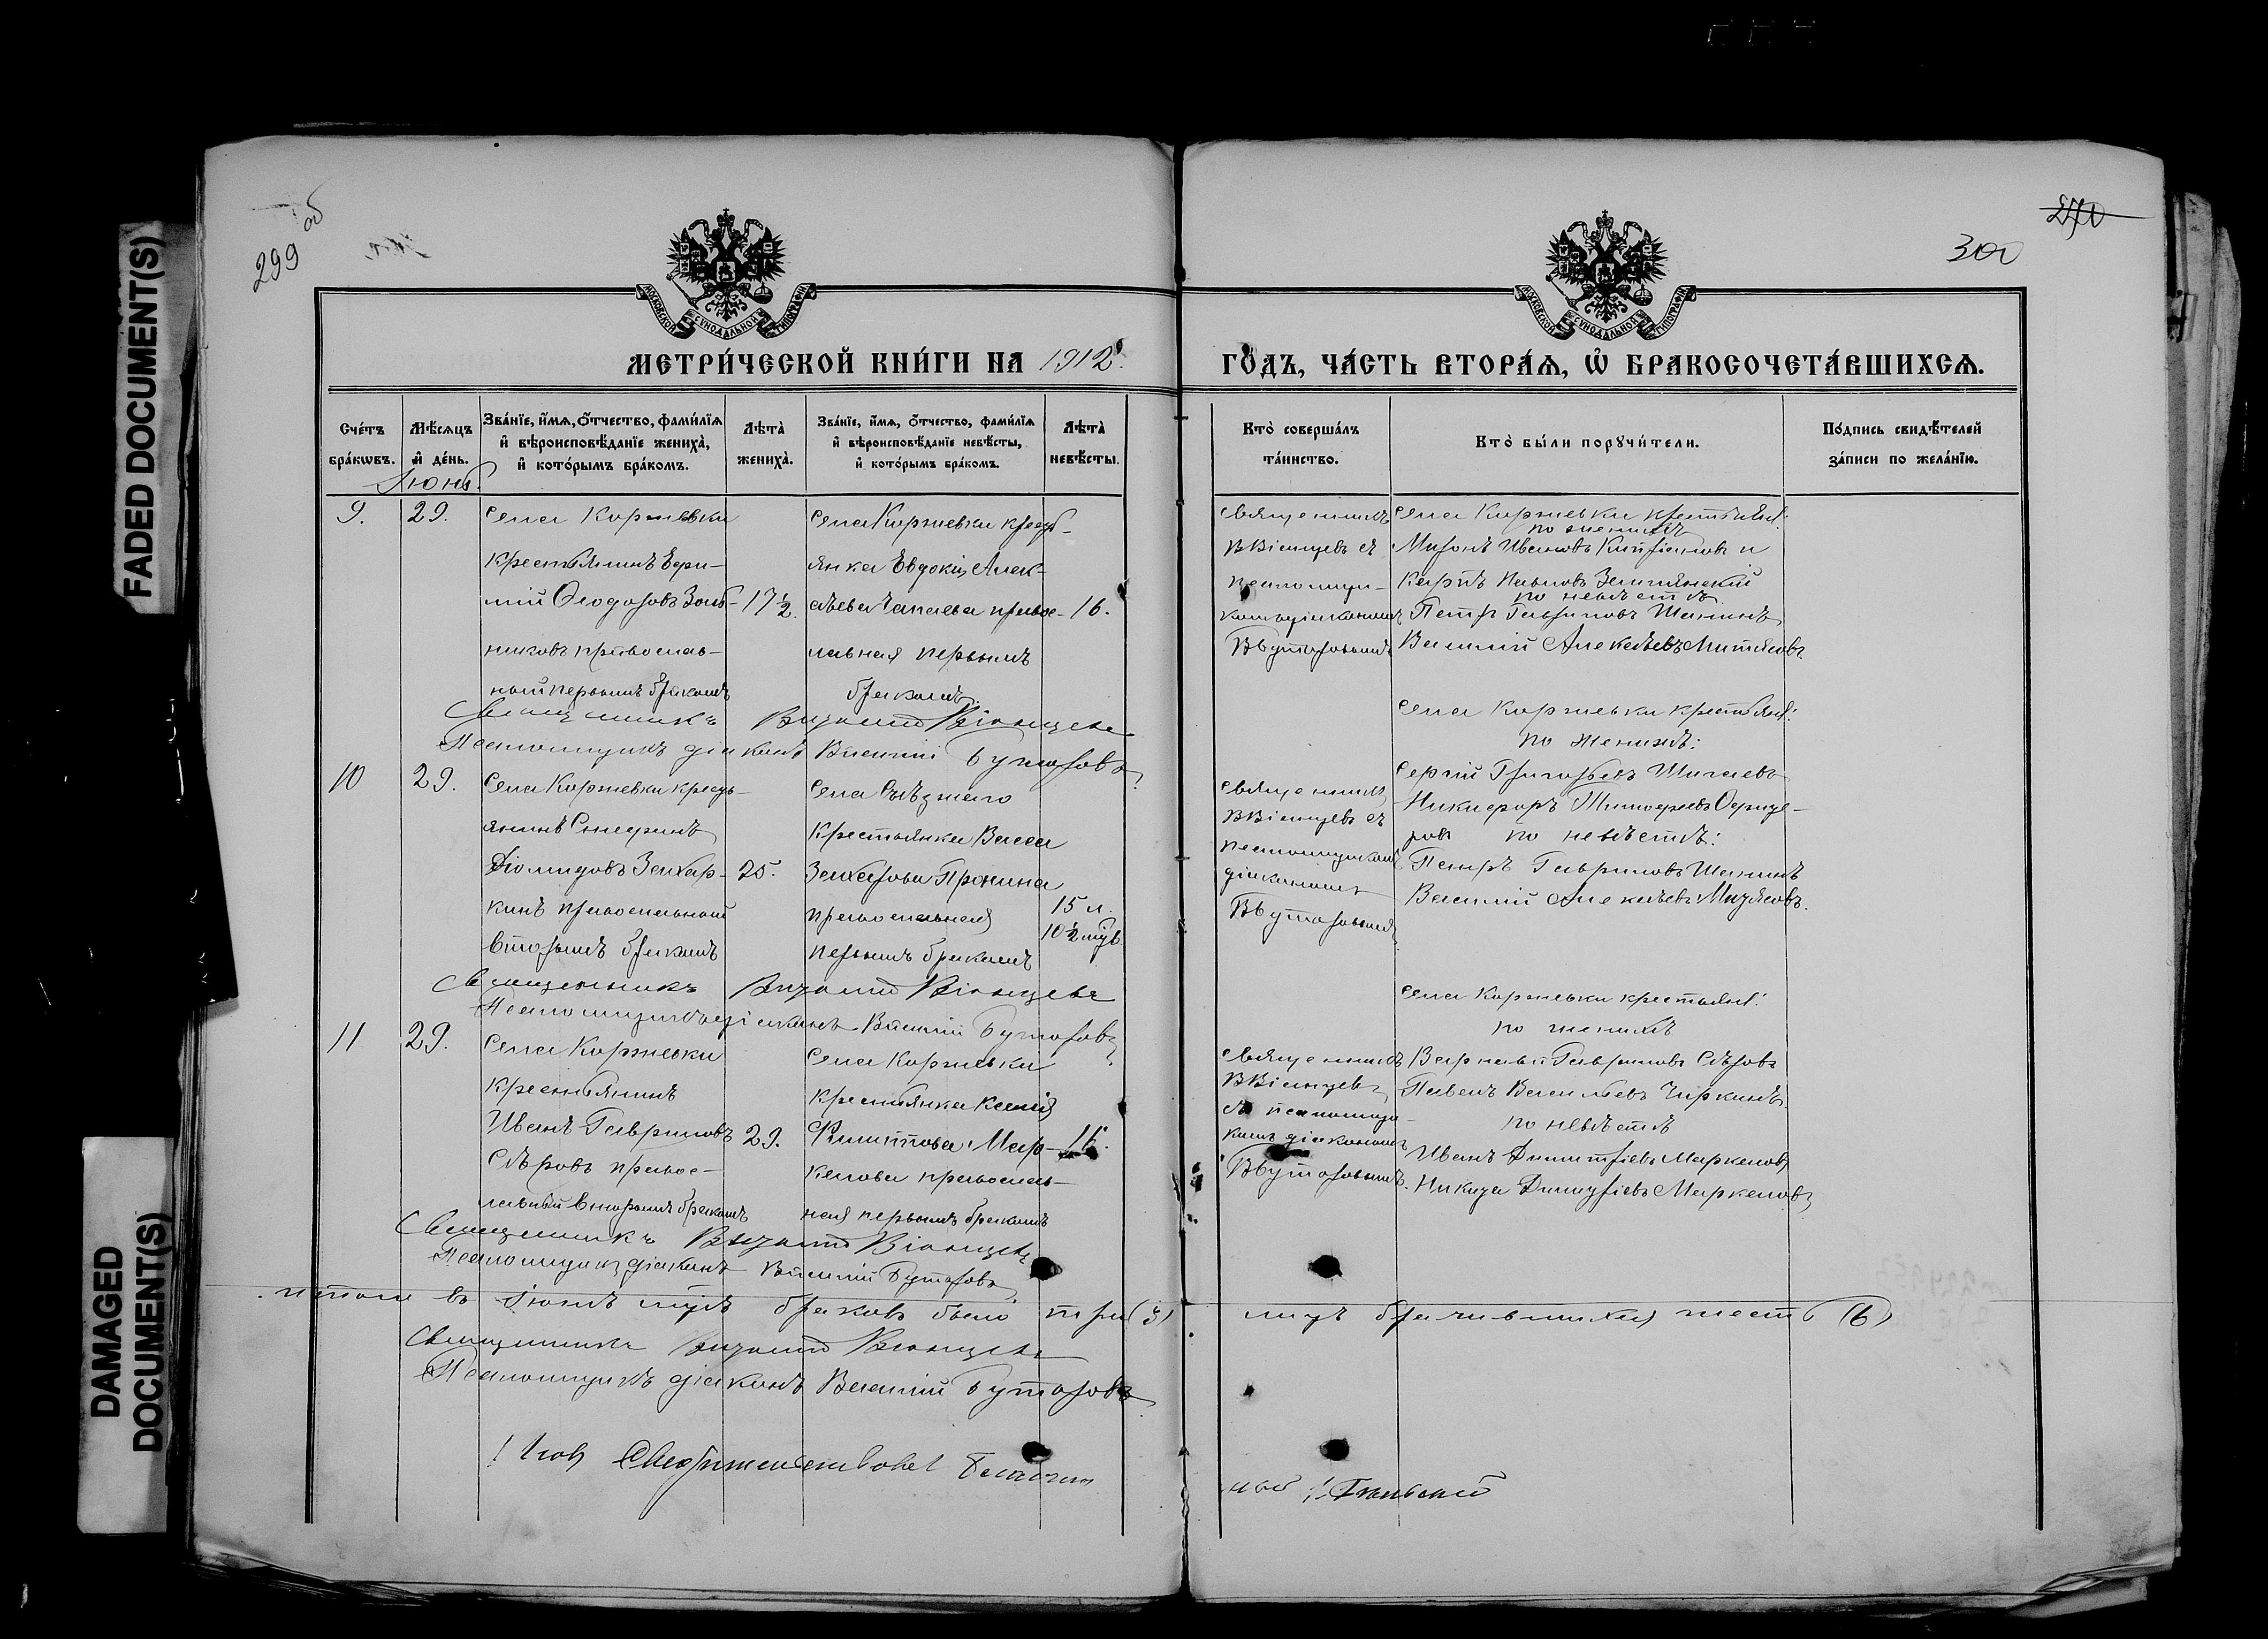 FADED DOCUMENT(S)
DAMAGED
DOCUMENT(S)
299 об
270
300
МОСКОВСКОЙ СѴНОДАЛЬНОЙ ТИПОГРАФІИ
МОСКОВСКОЙ СѴНОДАЛЬНОЙ ТИПОГРАФІИ
МЕТРИ́ЧЕСКОЙ КНИ́ГИ НА 1912 г.
ГО́ДЪ, ЧА́СТЬ ВТОРА́Ѧ, Ѡ҆ БРАКОСОЧЕТА́ВШИХСѦ.
Сче́тъ бра́кѡвъ.
Мѣ́сѧцъ и҆ де́нь.
Зва́нїе, и҆́мѧ, ѻ҆́тчество, фами́лїѧ и҆ вѣроисповѣ́данїе жениха̀, и҆ кото́рымъ бра́комъ.
Лѣта̀ жениха̀.
Зва́нїе, и҆́мѧ, ѻ҆́тчество, фами́лїѧ и҆ вѣроисповѣ́данїе невѣ́сты, и҆ кото́рымъ бра́комъ.
Лѣта̀ невѣ́сты.
Кто̀ соверша́лъ та́инство.
Кто̀ бы́ли порꙋчи́тели.
По́дпись свидѣ́телей за́писи по жела́нїю.
Іюнь.
9.
29.
Села Коржевки
крестьянинъ Ефи-
мій Ѳеодоровъ Золот-
никовъ православ-
ный первымъ бракомъ
17 ½.
Села Коржевки крест-
янка Евдокія Алек-
сѣева Чапаева правос-
лавная первымъ
бракомъ.
16.
Священникъ
В Віанцевъ съ
псаломщи-
комъ діакономъ
В Бутаровымъ
Села Коржевки крестьяне:
по женихѣ
Миронъ Ивановъ Кипріановъ и
Карпъ Павловъ Землянскій
по невѣстѣ
Петръ Гавриловъ Шанинъ
Василій Алексѣевъ Митясовъ
Священникъ Віанцевъ
Псаломщикъ діаконъ Василій Бутаровъ
10
29.
Села Коржевки кресть-
янинъ Стефанъ
Діомидовъ Захар-
кинъ православный
вторымъ бракомъ
25.
Села Съѣзжаго
крестьянка Васса
Захарова Пронина
православная
первымъ бракомъ
15 л.
10 ½ мѣс.
Священникъ
В Віанцевъ съ
псаломщикомъ
діакономъ
В Бутаровымъ
Села Коржевки крестьяне:
по женихѣ:
Сергій Григорьевъ Шигаевъ
Никифоръ Тимофеевъ Офице-
ровъ по невѣстѣ:
Петръ Гавриловъ Шанинъ
Василій Алексѣевъ Митясовъ.
Священникъ Віанцевъ
Псаломщикъ діаконъ Василій Бутаровъ
11
29.
Села Коржевки
крестьянинъ
Иванъ Гавриловъ
Сѣровъ правос-
лавный вторымъ бракомъ
29.
Села Коржевки
крестьянка Ксенія
Филиппова Мар-
келова православ-
ная первымъ бракомъ
16.
Священникъ
В Віанцевъ
съ псаломщи-
комъ діакономъ
В Бутаровымъ.
Села Коржевки крестьяне:
по женихѣ
Варнава Гавриловъ Сѣровъ
Павелъ Васильевъ Чиркинъ.
по невѣстѣ
Иванъ Димитріевъ Маркеловъ
Никита Димитріевъ Маркеловъ
Священникъ Віанцевъ
Псаломщикъ діаконъ Василій Бутаровъ
итого въ Іюнѣ мѣс. браковъ было три (3) лицъ брачившихся шесть (6)
Священникъ Віанцевъ
Псаломщикъ діаконъ Василій Бутаровъ